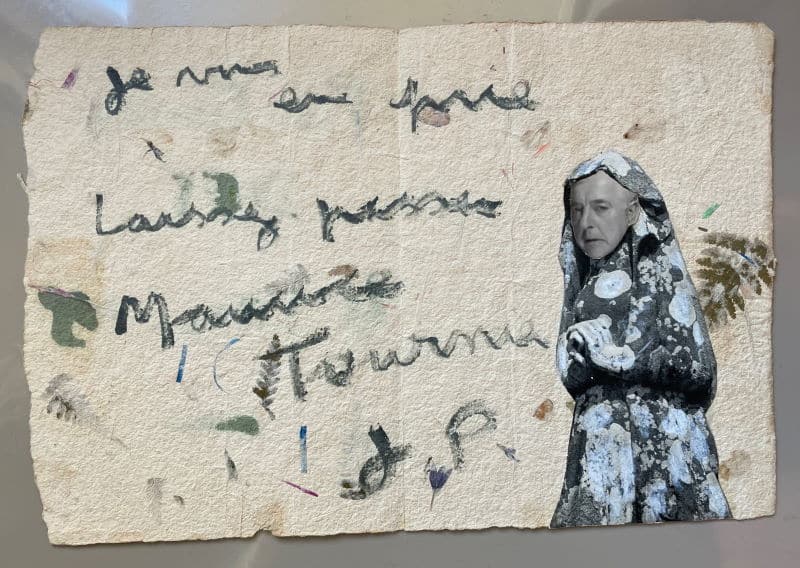 Je vous
en prie
Laissez passer
Maurice
Tourneur
J. P.